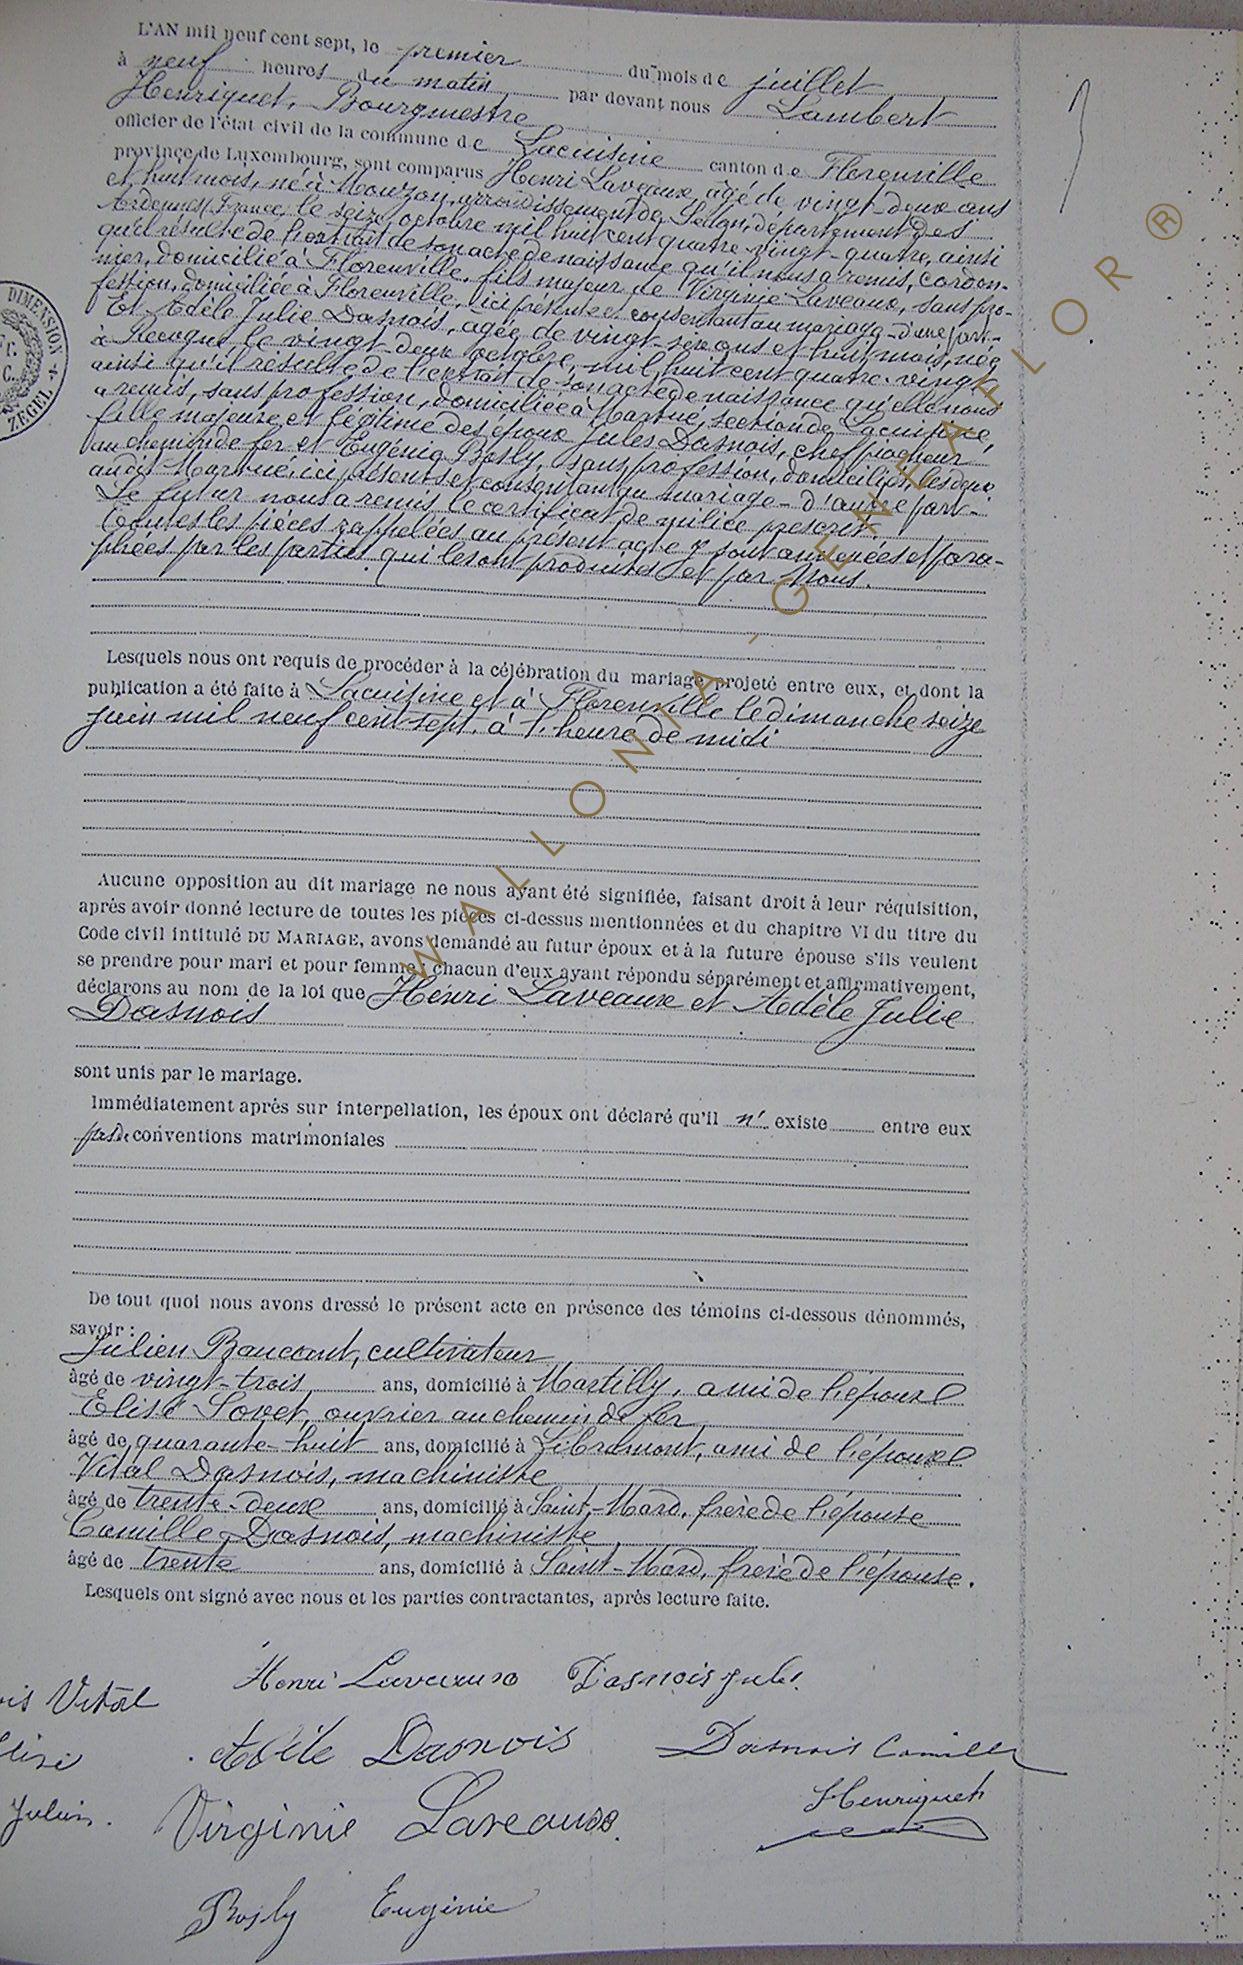 L'AN mil neuf cent sept, le premier du mois de juillet
à neuf heures du matin par devant nous Lambert
Henriquet, Bourgmestre
officier de l'état civil de la commune de Lacuisine canton de Florenville
province de Luxembourg, sont comparus Henri Laveaux, âgé de vingt-deux ans
et huit mois, né à Mouzon, arrondissement de Sedan, département des
Ardennes (France) le seize octobre mil huit cent quatre-vingt-quatre, ainsi
qu'il résulte de l'extrait de son acte de naissance qu'il nous a remis, cordon-
nier, domicilié à Florenville, fils majeur de Virginie Laveaux, sans pro-
fession, domiciliée à Florenville, ici présente et consentant au mariage - d'une part -
Et Adèle Julie Dasnois, âgée de vingt-six ans et huit mois, née
à Recogne le vingt-deux octobre, mil huit cent quatre-vingt
ainsi qu'il résulte de l'extrait de son acte de naissance qu'elle nous
a remis, sans profession, domiciliée à Martué, section de Lacuisine,
fille majeure et légitime des époux Jules Dasnois, chef piocheur
au chemin de fer et Eugénie Bosly, sans profession, domiciliés les deux
audit Martué, ici présents et consentant au mariage - d'autre part -
Le futur nous a remis le certificat de milice prescrit.
Toutes les pièces rappelées au présent acte y sont annexées et para-
phées par les parties qui les ont produites et par Nous.
Lesquels nous ont requis de procéder à la célébration du mariage projeté entre eux, et dont la
publication a été faite à Lacuisine et à Florenville le dimanche seize
juin mil neuf cent sept, à 1. heure de midi
Aucune opposition au dit mariage ne nous ayant été signifiée, faisant droit à leur réquisition,
après avoir donné lecture de toutes les pièces ci-dessus mentionnées et du chapitre VI du titre du
Code civil intitulé DU MARIAGE, avons demandé au futur époux et à la future épouse s'ils veulent
se prendre pour mari et pour femme; chacun d'eux ayant répondu séparément et affirmativement,
déclarons au nom de la loi que Henri Laveaux et Adèle Julie
Dasnois
sont unis par le mariage.
Immédiatement après sur interpellation, les époux ont déclaré qu'il n' existe entre eux
pas de conventions matrimoniales
De tout quoi nous avons dressé le présent acte en présence des témoins ci-dessous dénommés,
savoir:
Julien Baucant, cultivateur
âgé de vingt-trois ans, domicilié à Martilly, ami de l'époux
Elisé Sovet, ouvrier au chemin de fer
âgé de quarante-huit ans, domicilié à Libramont, ami de l'époux
Vital Dasnois, machiniste
âgé de trente-deux ans, domicilié à Saint-Mard, frère de l'épouse
Camille Dasnois, machiniste
âgé de trente ans, domicilié à Saint-Mard, frère de l'épouse.
Lesquels ont signé avec nous et les parties contractantes, après lecture faite.
Henri Laveaux Dasnois Jules
Vital
Adèle Dasnois Dasnois Camille
Henriquet
Julien. Virginie Laveaux
Bosly Eugénie
DIMENSION
ZEGEL
WALLONIA-GENEAFLOR ®